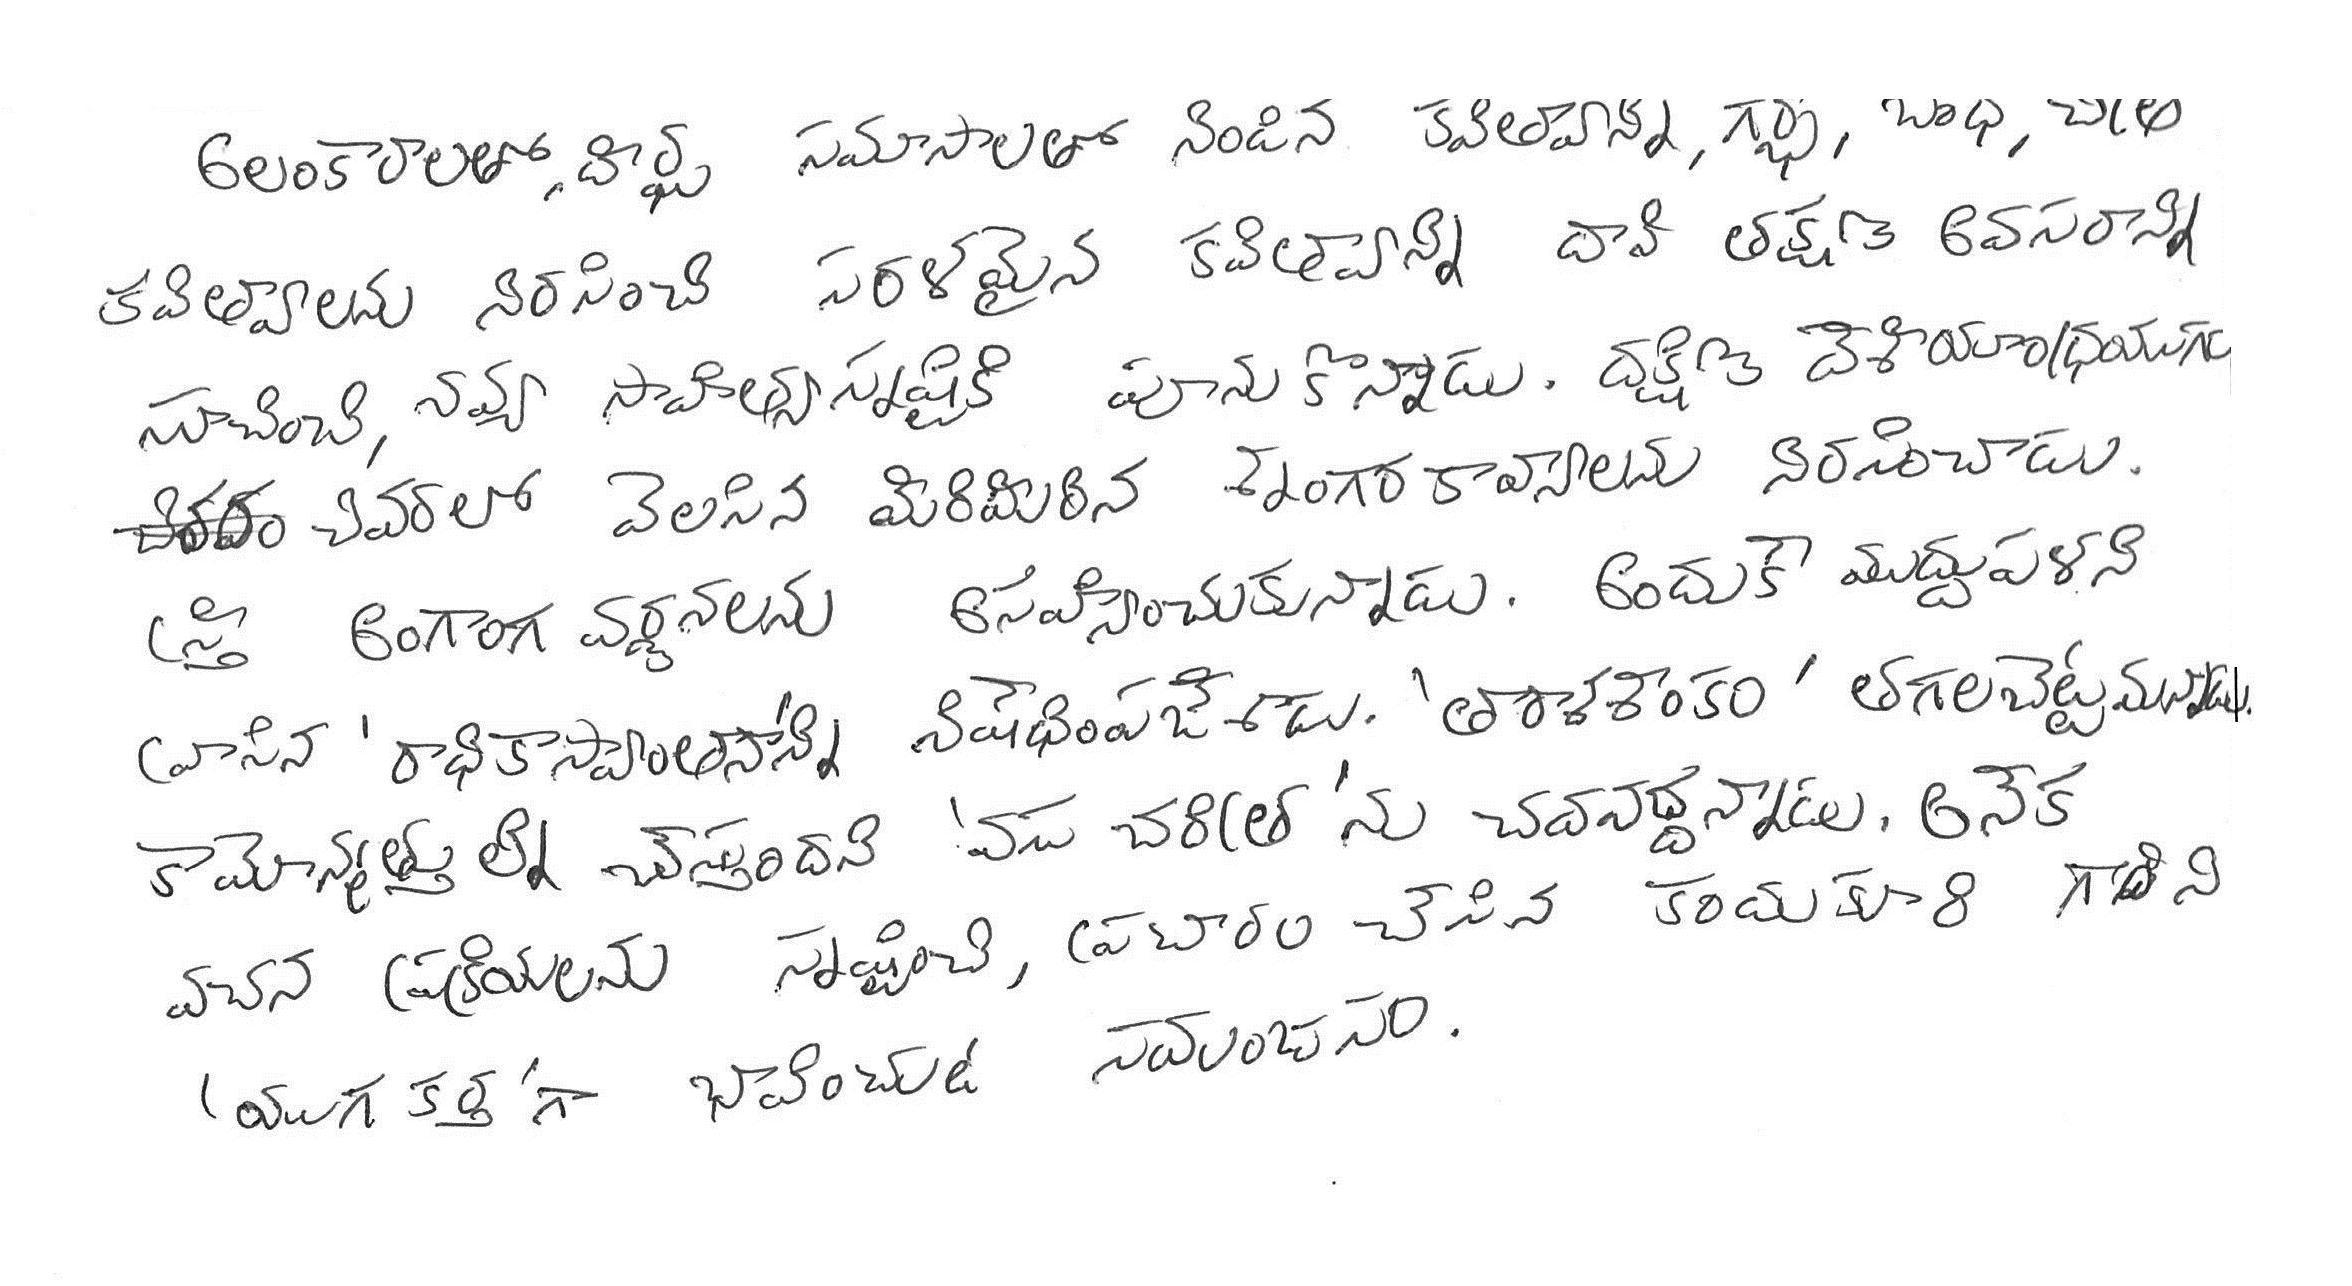 అలంకారాలతో, దీర్ఘ సమాసాలతో నిండిన కవిత్వాన్ని, గర్భ, బంధ, చిత్ర
కవిత్వాలను నిరసించి సరళమైన కవిత్వాన్ని దాని తక్షణ అవసరాన్ని
సూచించి, నవ్య సాహిత్య సృష్టికి పూనుకొన్నాడు. దక్షిణ దేశీయాంధ్రయుగం
చివరలో వెలసిన మితిమీరిన శృంగార కావ్యాలను నిరసించాడు.
స్త్రీ అంగాంగ వర్ణనలను అసహ్యించుకున్నాడు. అందుకే ముద్దుపళని
వ్రాసిన 'రాధికాస్వాంతనాన్ని నిషేధింపజేశాడు. 'తారాశశాంకం' తగలబెట్టమన్నాడు.
కామోన్మత్తుల్ని చేస్తుందని 'వసు చరిత్ర'ను చదవద్దన్నాడు. అనేక
వచన ప్రక్రియలను సృష్టించి, ప్రచారం చేసిన కందుకూరి గారిని
'యుగ కర్త'గా భావించుట సమంజసం.